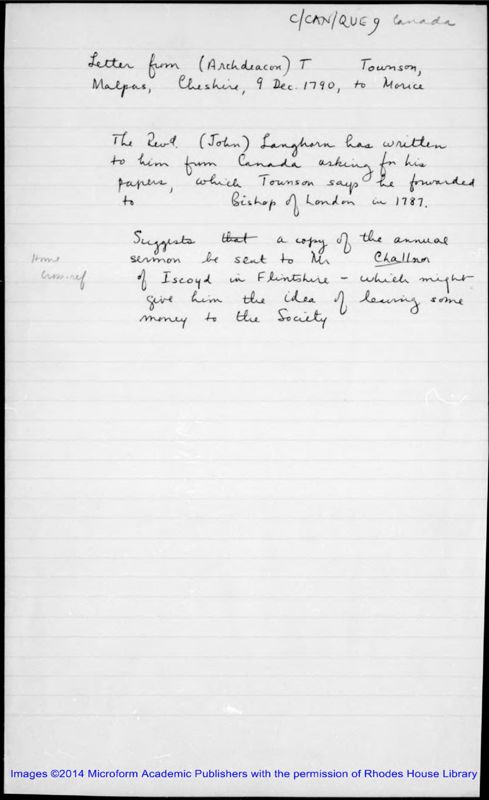 C/CAN/QUE 9 Canada
Letter from (Archdeacon) T Townson,
Malpas, Cheshire, 9 Dec. 1790, to Morice
The Revd. (John) Langhorn has written
to him from Canada asking for his
papers, which Townson says he forwarded
to Bishop of London in 1787.
Suggests that a copy of the annual
sermon be sent to Mr Challnor
of Iscoyd in Flintshire - which might
give him the idea of leaving some
money to the Society
Home
Cross-ref
Images ©2014 Microform Academic Publishers with the permission of Rhodes House Library